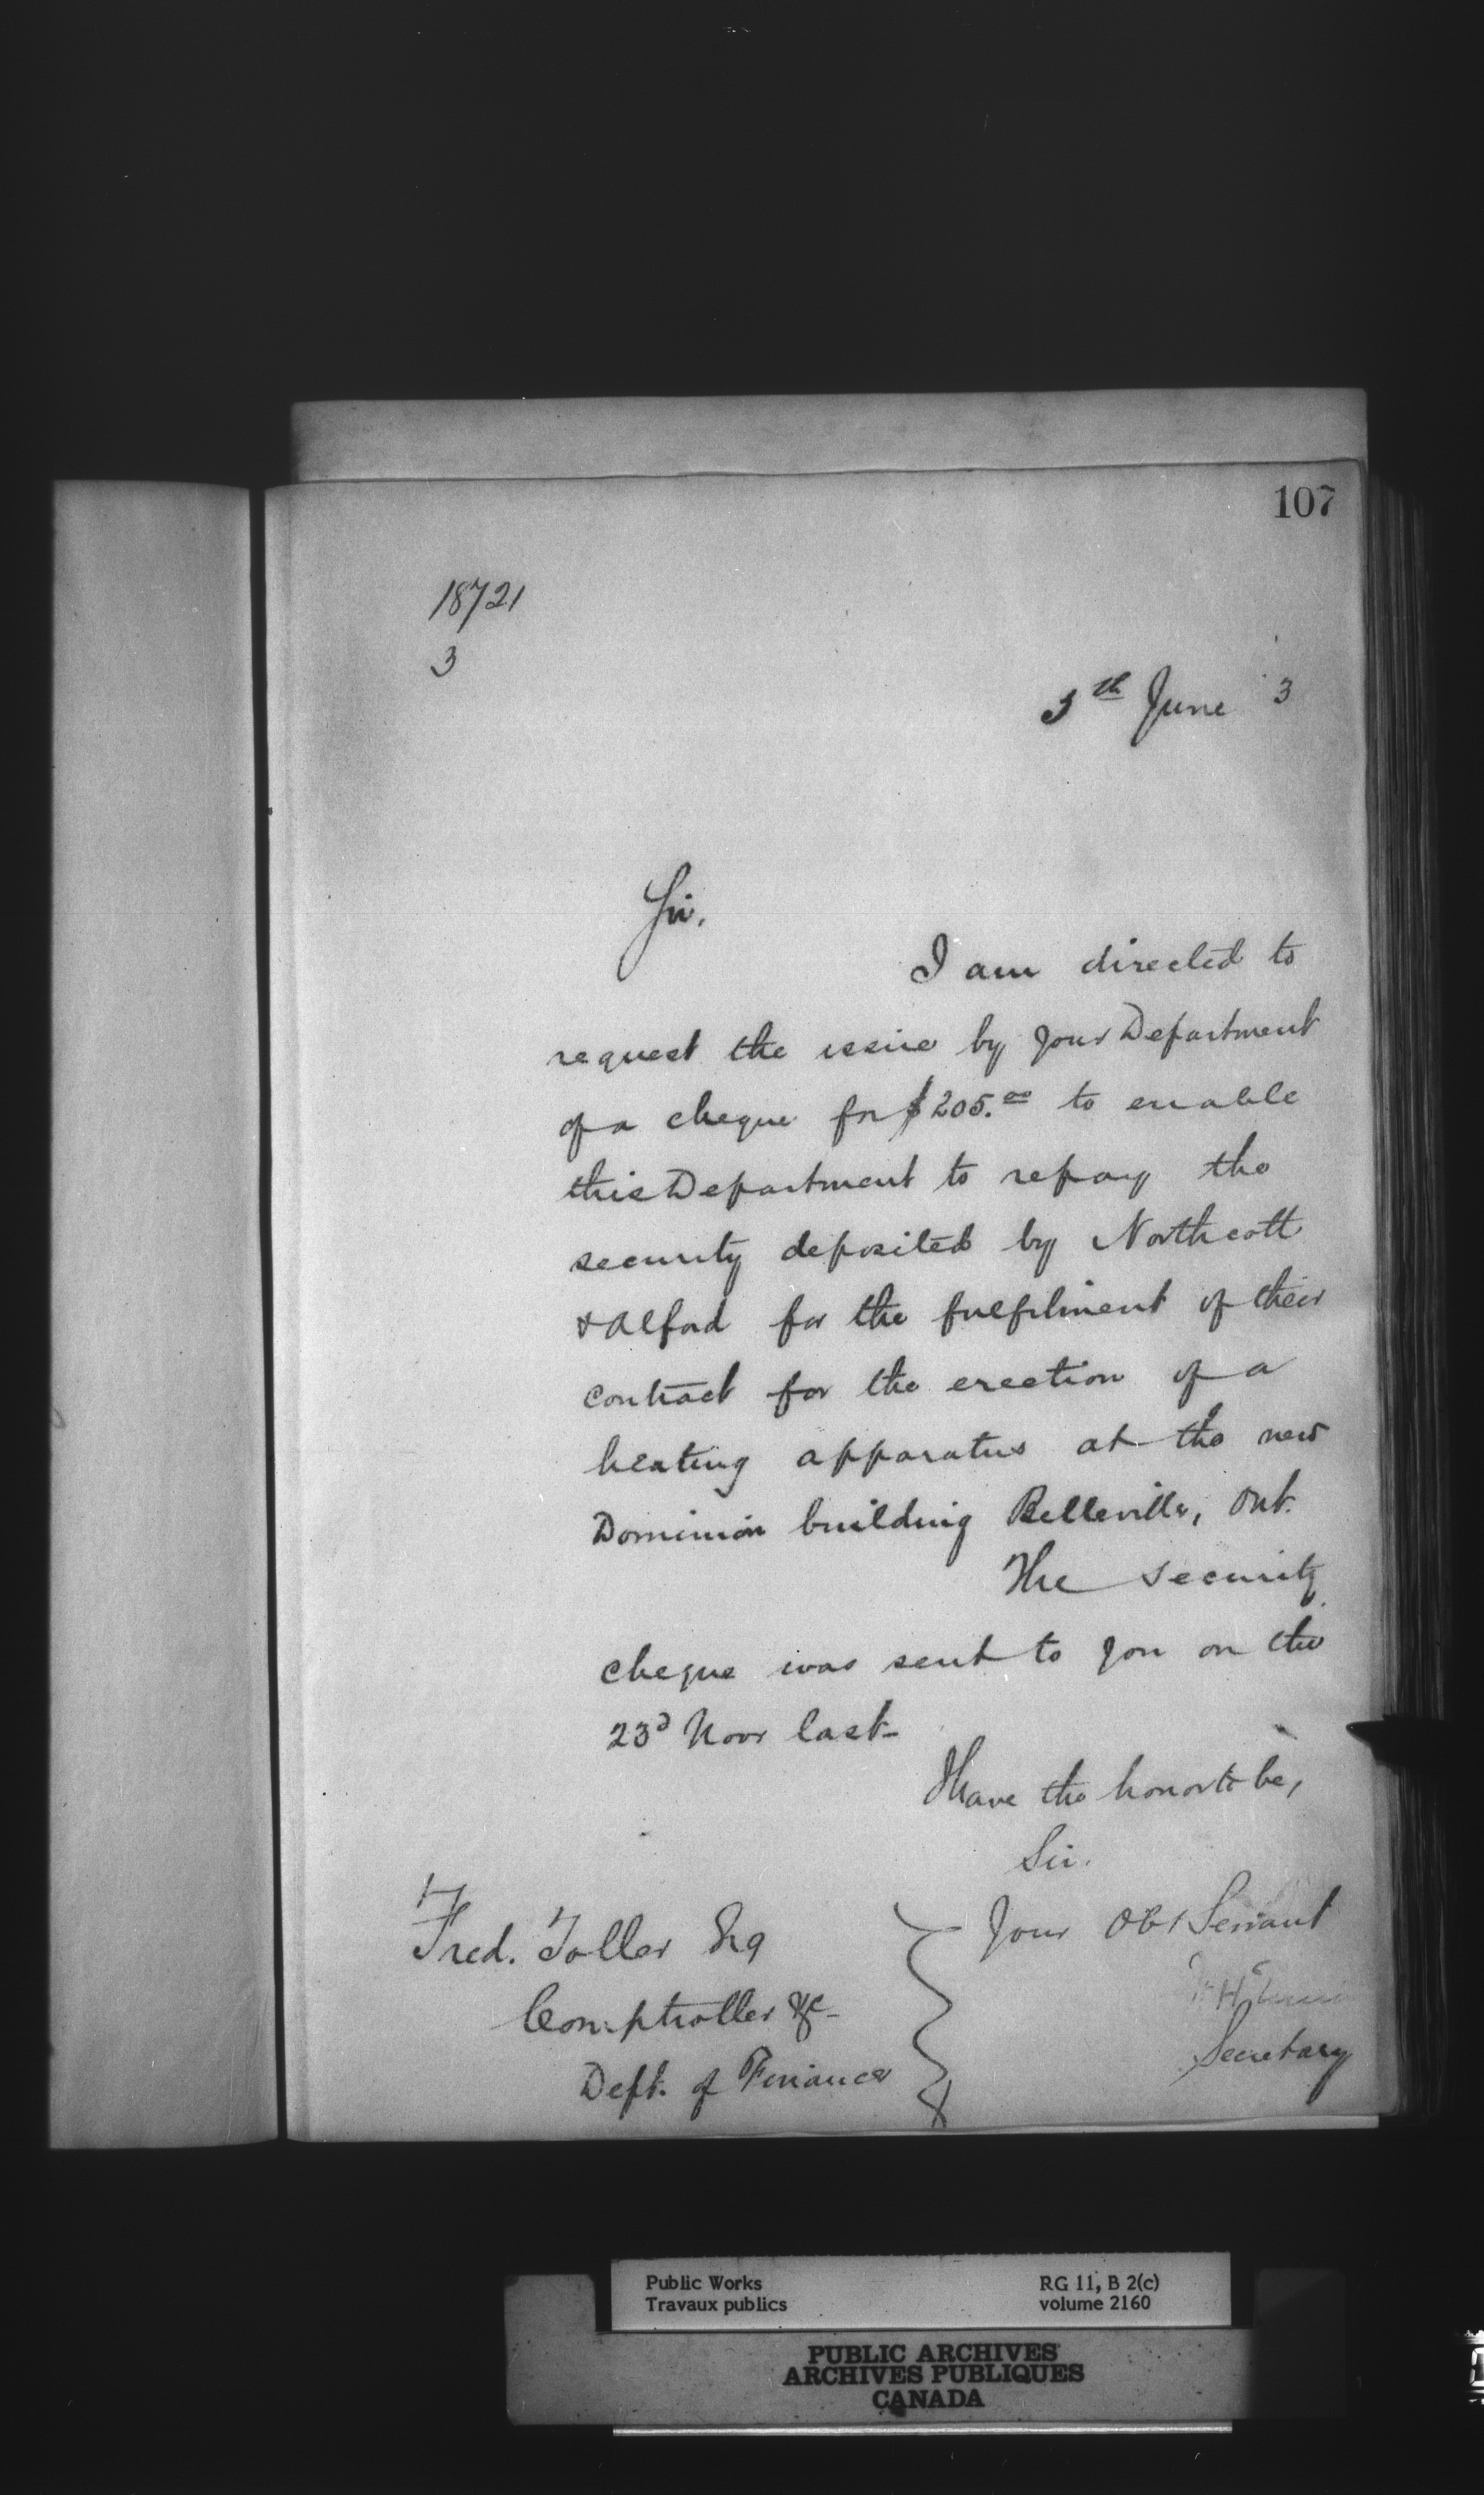 107
18721
3
5th June 3
Sir,
I am directed to
request the issue by your Department
of a cheque for $205.00 to enable
this Department to repay the
security deposited by Northcott
& Alford for the fulfilment of their
contract for the erection of a
heating apparatus at the new
Dominion building Belleville, Ont.
The security
cheque was sent to you on the
23d Novr last-
I have the honor to be,
Sir.
Your Obt Servant
Secretary
Fred. Toller Esq
Comptroller &c-
Dept. of Finance
Public Works
Travaux publics
RG 11, B 2(c)
volume 2160
PUBLIC ARCHIVES
ARCHIVES PUBLIQUES
CANADA